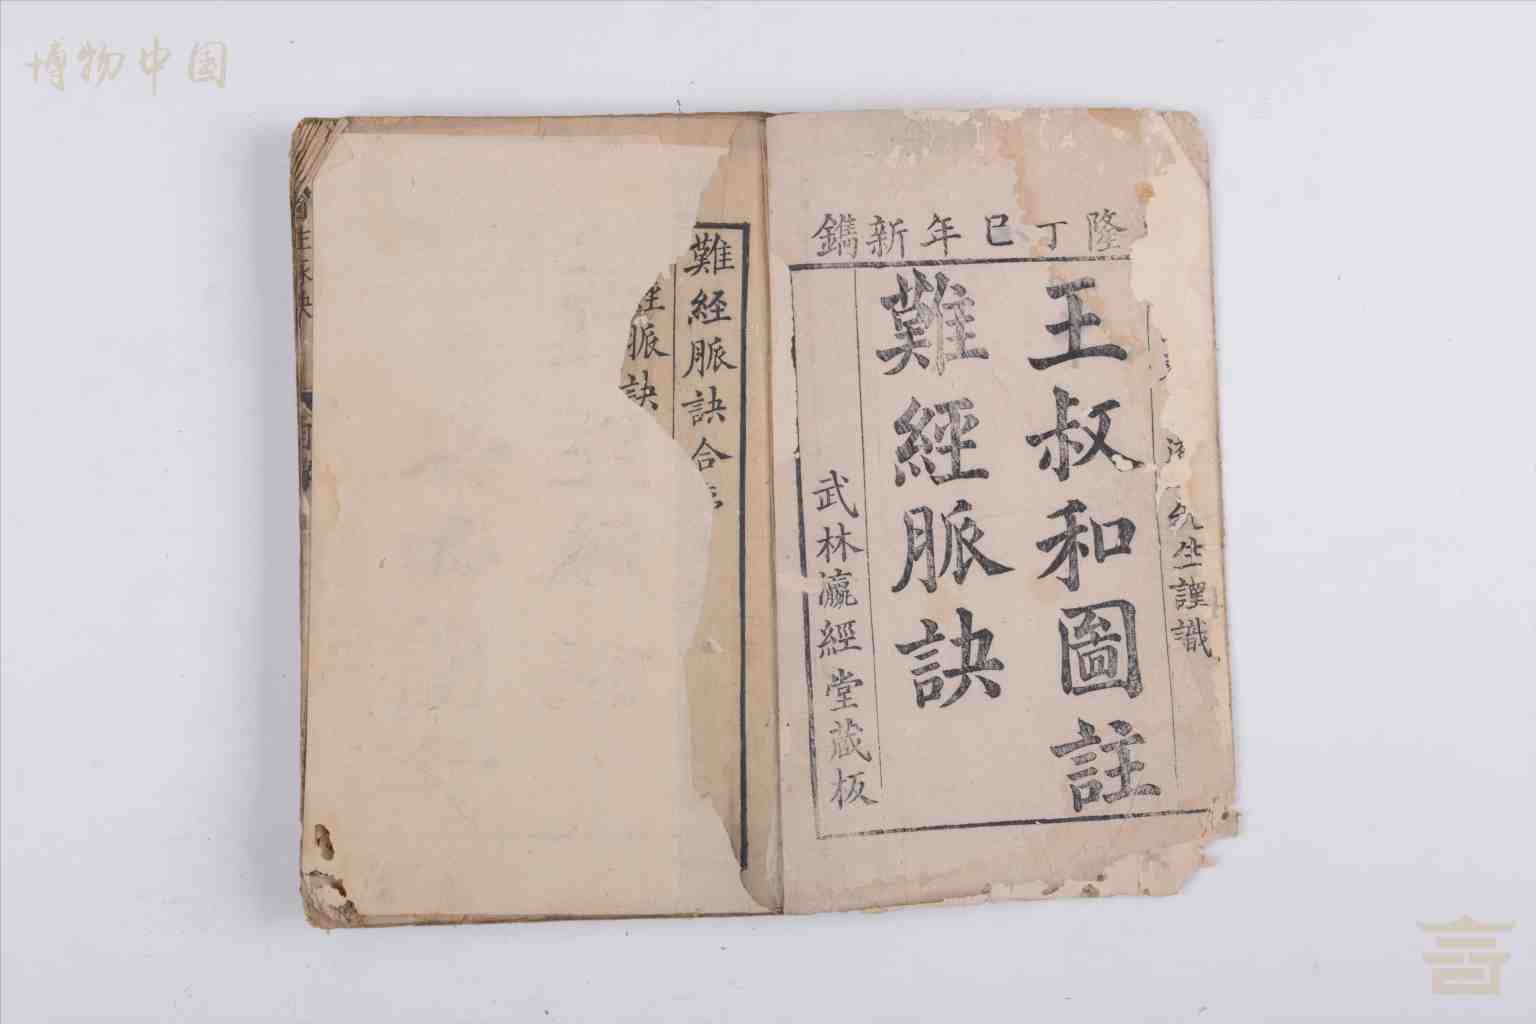 博物中国
隆丁巳年新鐫
先生謹識
王叔和圖註
難經脈訣
武林瀛經堂蔵板
難経脈訣合
経脈訣